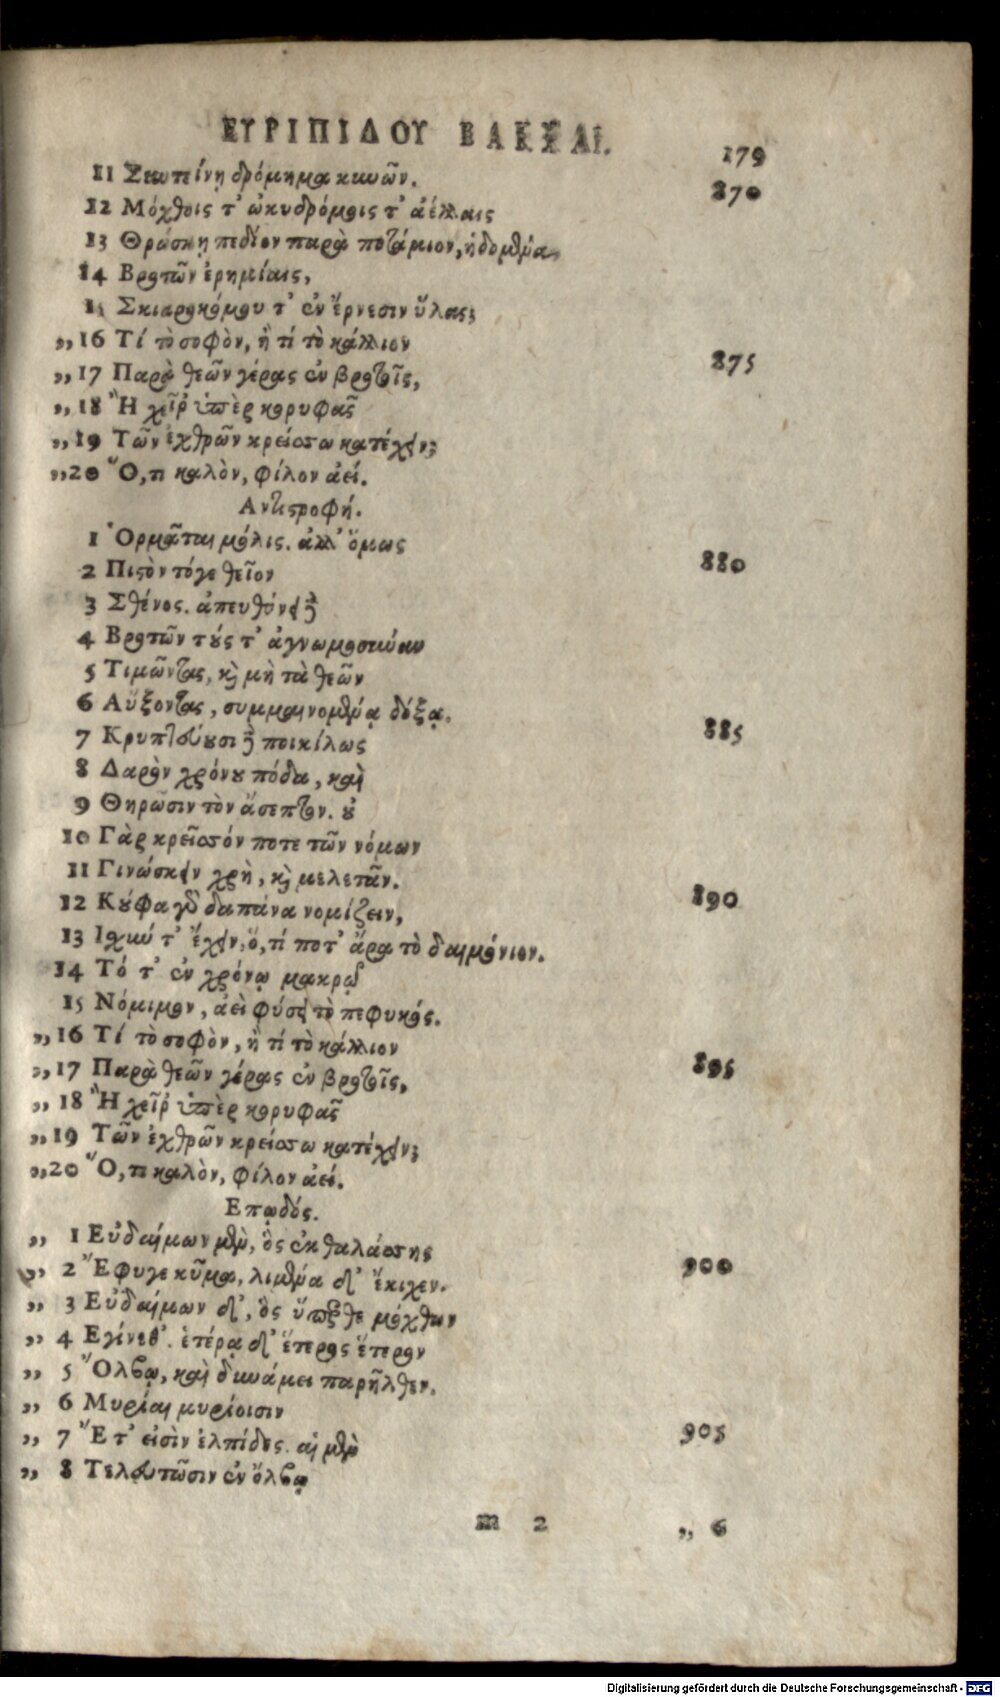 ΕΥΡΙΠΙΔΟΥ ΒΑΚΧΑΙ. 179
11 Συντείνῃ δρόμημα κυνῶν. 870
12 Μόχθοις τ' ὠκυδρόμοις τ' ἀέλλαις
13 Θρώσκῃ πεδίον παρὰ ποτάμιον, ἡδομένα
14 Βροτῶν ἐρημίαις,
15 Σκιαροκόμου τ' ἐν ἔρνεσιν ὕλας;
„ 16 Τί τὸ σοφὸν, ἢ τί τὸ κάλλιον 875
„ 17 Παρὰ θεῶν γέρας ἐν βροτοῖς,
„ 18 Ἢ χεῖρ' ὑπὲρ κορυφᾶς
„ 19 Τῶν ἐχθρῶν κρείσσω κατέχειν;
„ 20 Ὅ, τι καλὸν, φίλον ἀεί.
Αντιστροφή.
1 Ὁρμᾶται μόλις. ἀλλ' ὅμως 880
2 Πιστὸν τόγε θεῖον
3 Σθένος. ἀπευθύνει δὲ
4 Βροτῶν τούς τ' ἀγνωμοσύναν
5 Τιμῶντας, καὶ μὴ τὰ θεῶν
6 Αὔξοντας, συμμαινομένᾳ δόξᾳ. 885
7 Κρυπτεύουσι δὲ ποικίλως
8 Δαρὸν χρόνου πόδα, καὶ
9 Θηρῶσιν τὸν ἄσεπτον. οὐ
10 Γὰρ κρεῖσσόν ποτε τῶν νόμων
11 Γινώσκειν χρὴ, καὶ μελετᾶν. 890
12 Κούφα γὰρ δαπάνα νομίζειν,
13 Ισχύ τ' ἔχειν, ὅ, τί ποτ' ἄρα τὸ δαιμόνιον.
14 Τό τ' ἐν χρόνῳ μακρῷ
15 Νόμιμον, ἀεὶ φύσει τὸ πεφυκός.
„ 16 Τί τὸ σοφὸν, ἢ τί τὸ κάλλιον 895
„ 17 Παρὰ θεῶν γέρας ἐν βροτοῖς,
„ 18 Ἢ χεῖρ' ὑπὲρ κορυφᾶς
„ 19 Τῶν ἐχθρῶν κρείσσω κατέχειν;
„ 20 Ὅ, τι καλὸν, φίλον ἀεί.
Επῳδός.
„ 1 Εὐδαίμων μὲν, ὃς ἐκ θαλάσσης 900
„ 2 Ἔφυγε κῦμα, λιμένα δ' ἔκιχεν.
„ 3 Εὐδαίμων δ', ὃς ὕπερθε μόχθων
„ 4 Εγένεθ'. ἑτέρᾳ δ' ἕτερος ἕτερον
„ 5 Ὄλβῳ, καὶ δυνάμει παρῆλθεν.
„ 6 Μυρίαι μυρίοισιν
„ 7 Ἔτ' εἰσὶν ἐλπίδες. αἱ μὲν 905
„ 8 Τελευτῶσιν ἐν ὄλβῳ
m 2 „ 6
Digitalisierung gefördert durch die Deutsche Forschungsgemeinschaft - DFG